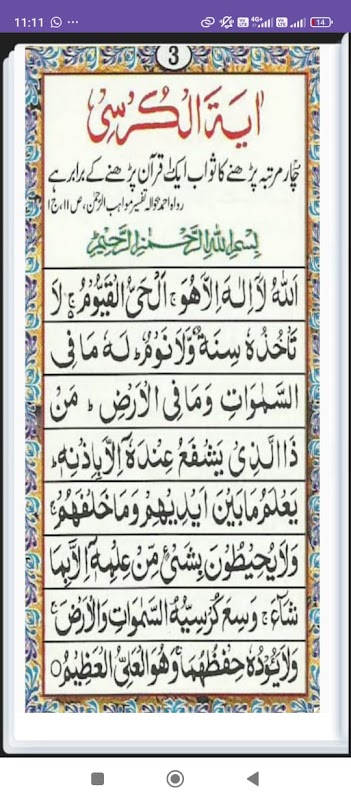 11:11
14
3
اٰیَةُ الْکُرْسِیْ
چار مرتبہ پڑھنے کا ثواب ایک قرآن پڑھنے کے برابر ہے
رواہ احمد بحوالہ تفسیر مواہب الرحمٰن، ص ۱۱، ج ۱
بِسْمِ اللهِ الرَّحْمٰنِ الرَّحِیْمِ
اَللهُ لَاۤ اِلٰهَ اِلَّا هُوَۚ اَلْحَیُّ الْقَیُّوْمُ ۚ لَا
تَاْخُذُهٗ سِنَةٌ وَّلَا نَوْمٌ ؕ لَهٗ مَا فِی
السَّمٰوٰتِ وَمَا فِی الْاَرْضِ ؕ مَنْ
ذَا الَّذِیْ یَشْفَعُ عِنْدَهٗۤ اِلَّا بِاِذْنِهٖ ؕ
یَعْلَمُ مَا بَیْنَ اَیْدِیْهِمْ وَمَا خَلْفَهُمْ ۚ
وَلَا یُحِیْطُوْنَ بِشَیْءٍ مِّنْ عِلْمِهٖۤ اِلَّا بِمَا
شَآءَ ۚ وَسِعَ کُرْسِیُّهُ السَّمٰوٰتِ وَالْاَرْضَ ۚ
وَلَا یَئُوْدُهٗ حِفْظُهُمَا ۚ وَهُوَ الْعَلِیُّ الْعَظِیْمُ ○